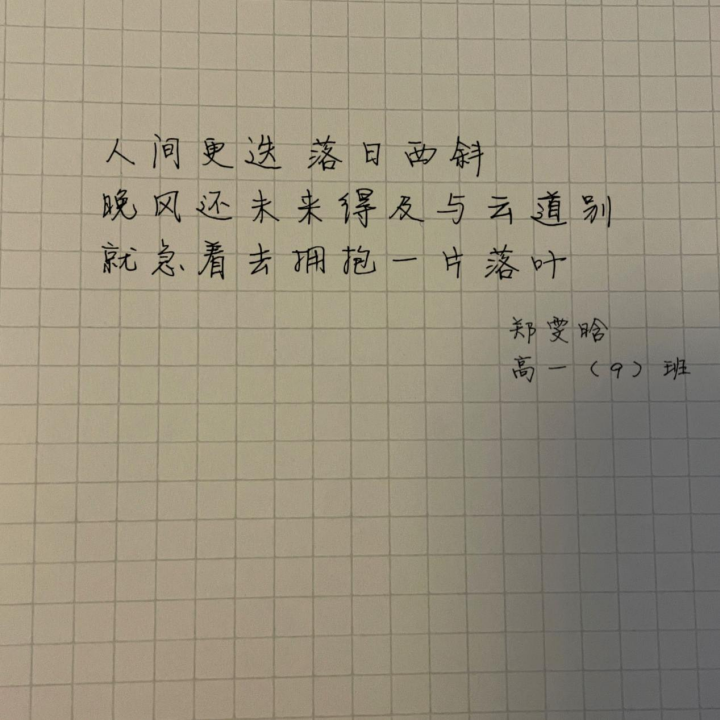 人间更迭 落日西斜
晚风还未来得及与云道别
就急着去拥抱一片落叶
郑雯晗
高一(9)班